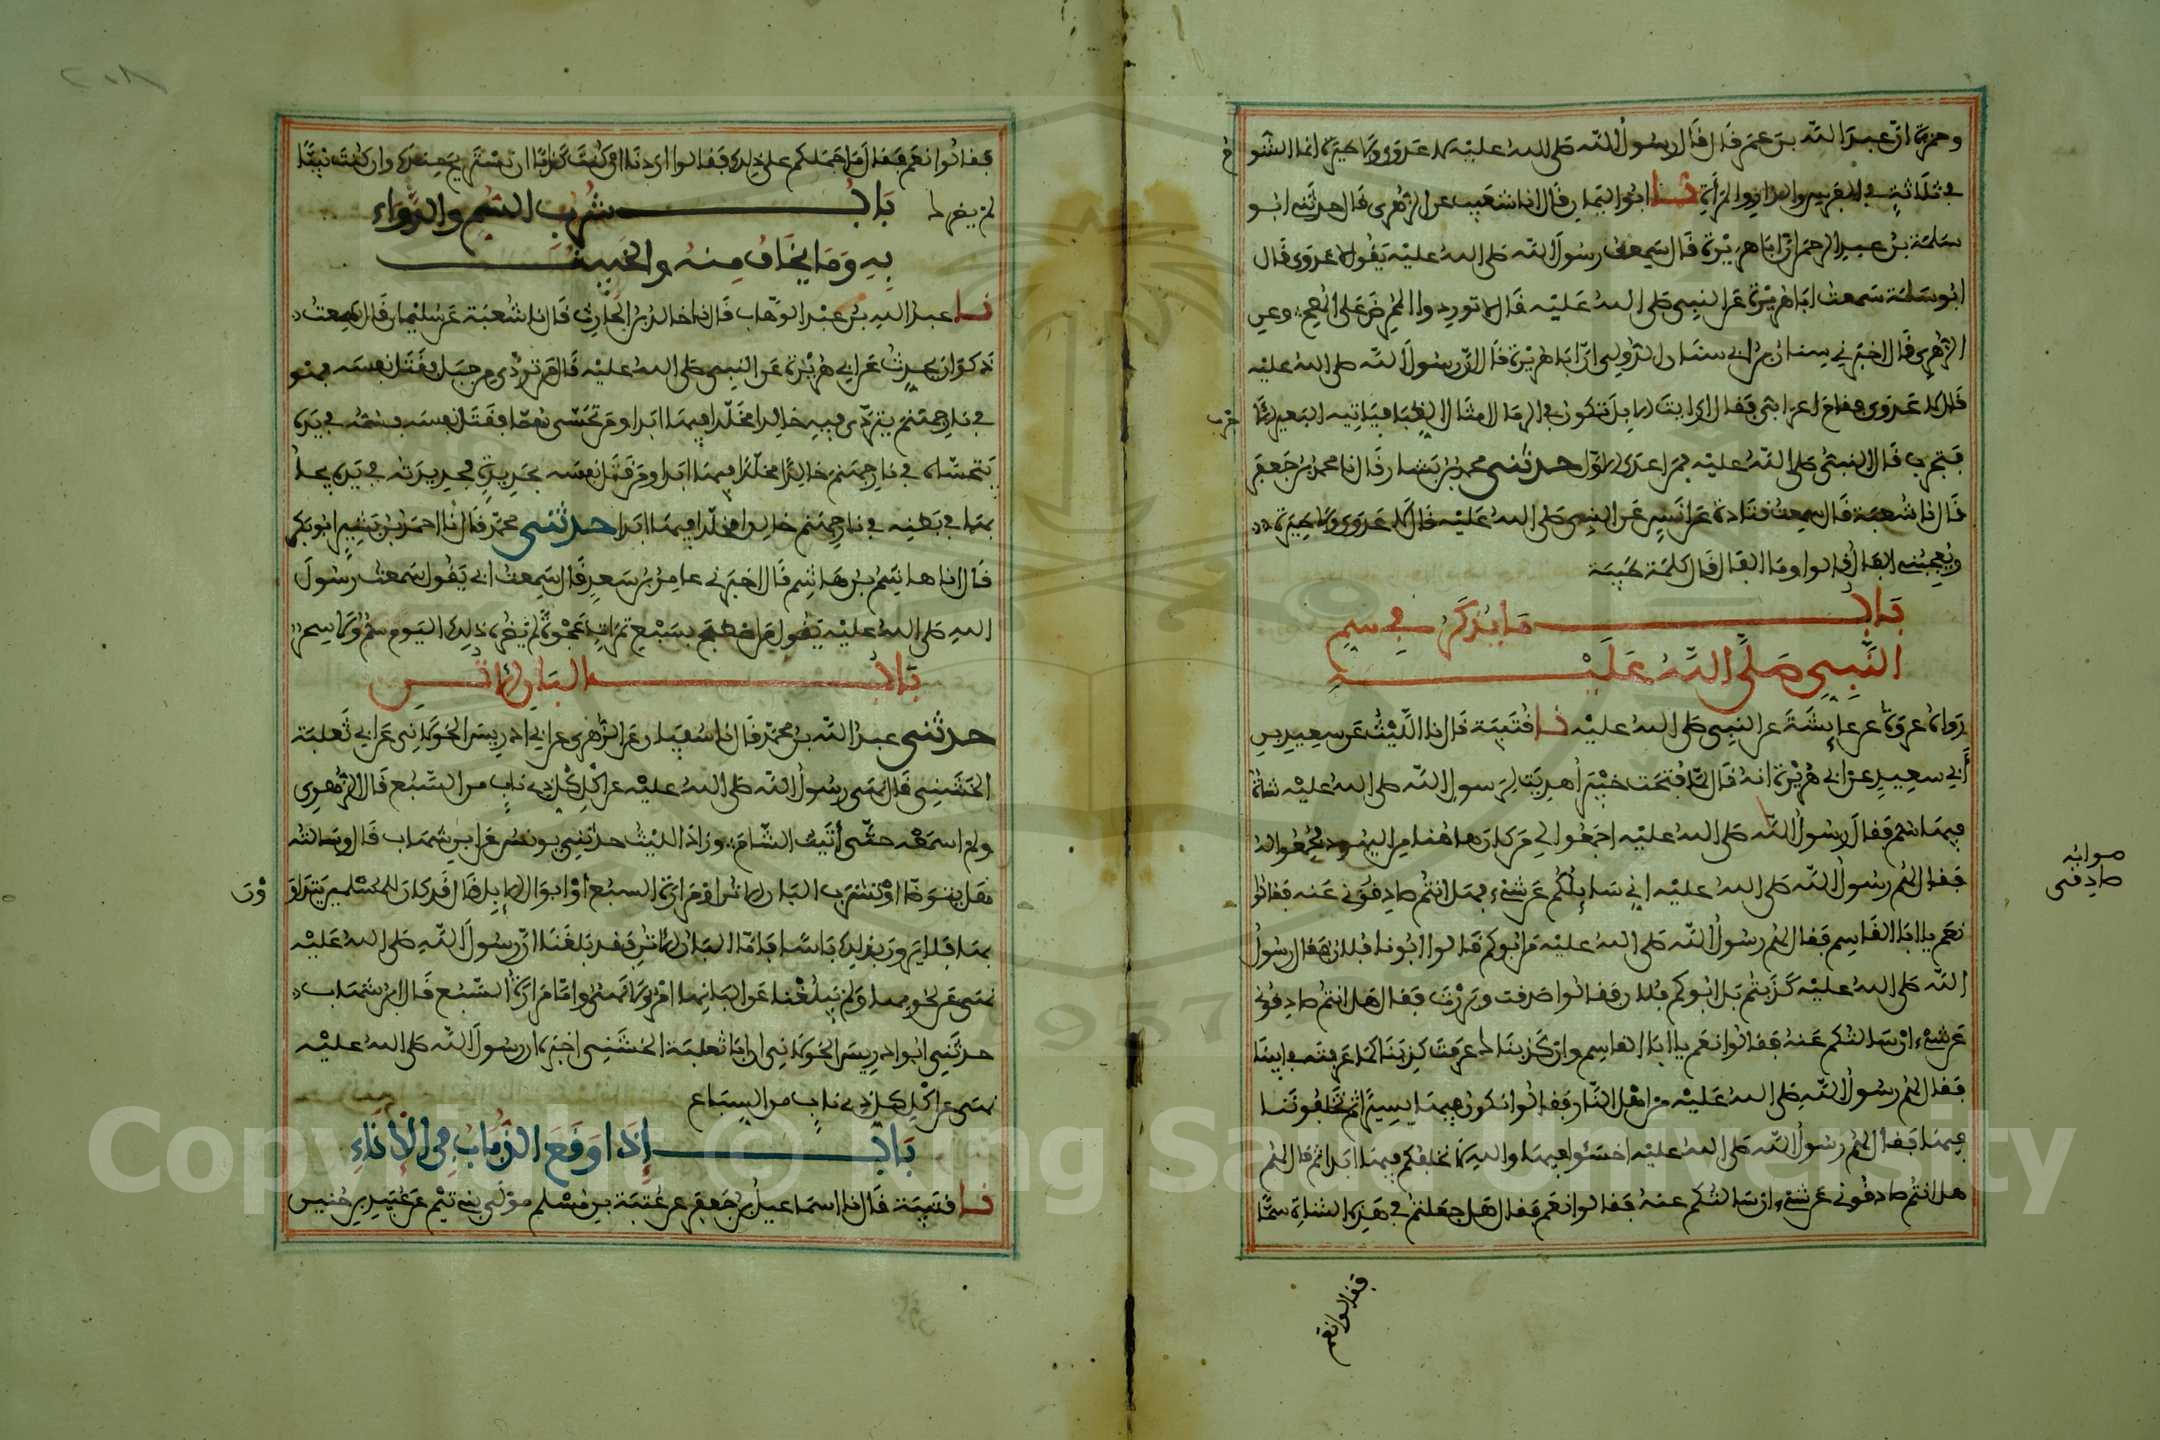 وحمزة ان عبد الله بن عمر قال قال رسول الله صلى الله عليه لا عدوى ولا طيرة انما الشوم
في ثلاثة في الفرس والدار والمرأة نا ابو اليمان قال انا شعيب عن الزهري قال حدثني ابو
سلمة بن عبد الرحمن ان ابا هريرة قال سمعت رسول الله صلى الله عليه يقول لا عدوى قال
ابو سلمة سمعت ابا هريرة عن النبي صلى الله عليه قال لا توردوا الممرض على المصح وعن
الزهري قال اخبرني سنان بن ابي سنان الدؤلي ان ابا هريرة قال ان رسول الله صلى الله عليه
قال لا عدوى فقام اعرابي فقال ارايت الابل تكون في الرمال امثال الظباء فياتيه البعير
فتجرب قال النبي صلى الله عليه فمن اعدى الاول حدثني محمد بن بشار قال نا محمد بن جعفر
قال نا شعبة قال سمعت قتادة عن انس عن النبي صلى الله عليه قال لا عدوى ولا طيرة
ويعجبني الفال قالوا وما الفال قال كلمة طيبة
باب ما يذكر في سم
النبي صلى الله عليه
رواه عروة عن عايشة عن النبي صلى الله عليه نا قتيبة قال نا الليث عن سعيد بن
أبي سعيد عن ابي هريرة انه قال لما فتحت خيبر أهديت لرسول الله صلى الله عليه شاة
فيها سم فقال رسول الله صلى الله عليه اجمعوا لي من كان هاهنا من اليهود فجمعوا له
فقال لهم رسول الله صلى الله عليه اني سايلكم عن شيء فهل انتم صادقوني عنه فقالوا
نعم يا ابا القاسم فقال لهم رسول الله صلى الله عليه من ابوكم قالوا ابونا فلان فقال رسول
الله صلى الله عليه كذبتم بل ابوكم فلان فقالوا صدقت وبررت فقال هل انتم صادقوني
عن شيء ان سالتكم عنه فقالوا نعم يا ابا القاسم وان كذبناك عرفت كذبنا كما عرفته في ابينا
فقال لهم رسول الله صلى الله عليه من اهل النار فقالوا نكون فيها يسيرا ثم تخلفوننا
فيها فقال لهم رسول الله صلى الله عليه اخسئوا فيها والله لا نخلفكم فيها ابدا ثم قال لهم
هل انتم صادقوني عن شيء ان سالتكم عنه فقالوا نعم فقال هل جعلتم في هذه الشاة سما
صوابه
صادقي
فقالوا نعم
٢٠٨
فقالوا نعم فقال ما حملكم على ذلك فقالوا اردنا ان كنت كذابا ان نستريح منك وان كنت نبيا
لم يضرك باب شرب السم والدواء
به وما يخاف منه والخبيث
نا عبد الله بن عبد الوهاب قال نا خالد بن الحارث قال نا شعبة عن سليمان قال سمعت
ذكوان يحدث عن ابي هريرة عن النبي صلى الله عليه قال من تردى من جبل فقتل نفسه فهو
في نار جهنم يتردى فيه خالدا مخلدا فيها ابدا ومن تحسى سما فقتل نفسه فسمه في يده
يتحساه في نار جهنم خالدا مخلدا فيها ابدا ومن قتل نفسه بحديدة فحديدته في يده يجأ
بها في بطنه في نار جهنم خالدا مخلدا فيها ابدا حدثني محمد قال نا احمد بن بشير ابو بكر
قال انا هاشم بن هاشم قال اخبرني عامر بن سعد قال سمعت ابي يقول سمعت رسول
الله صلى الله عليه يقول من اصطبح بسبع تمرات عجوة لم يضره ذلك اليوم سم ولا سحر
باب البان الاتن
حدثني عبد الله بن محمد قال نا سفيان عن الزهري عن ابي ادريس الخولاني عن ابي ثعلبة
الخشني قال نهى رسول الله صلى الله عليه عن اكل كل ذي ناب من السبع قال الزهري
ولم اسمعه حتى أتيت الشام وزاد الليث حدثني يونس عن ابن شهاب قال وسالته
هل نتوضأ او نشرب البان الاتن او مرارة السبع او ابوال الابل قال قد كان المسلمون يتداوون
بها فلا يرون بذلك باسا فاما البان الاتن فقد بلغنا ان رسول الله صلى الله عليه
نهى عن لحومها ولم يبلغنا عن البانها امر ولا نهي واما مرارة السبع قال ابن شهاب
حدثني ابو ادريس الخولاني ان ابا ثعلبة الخشني اخبره ان رسول الله صلى الله عليه
نهى عن اكل كل ذي ناب من السباع
باب إذا وقع الذباب في الإناء
نا قتيبة قال نا اسماعيل بن جعفر عن عتبة بن مسلم مولى بني تيم عن عبيد بن حنين
Copyright © King Saud University
1957